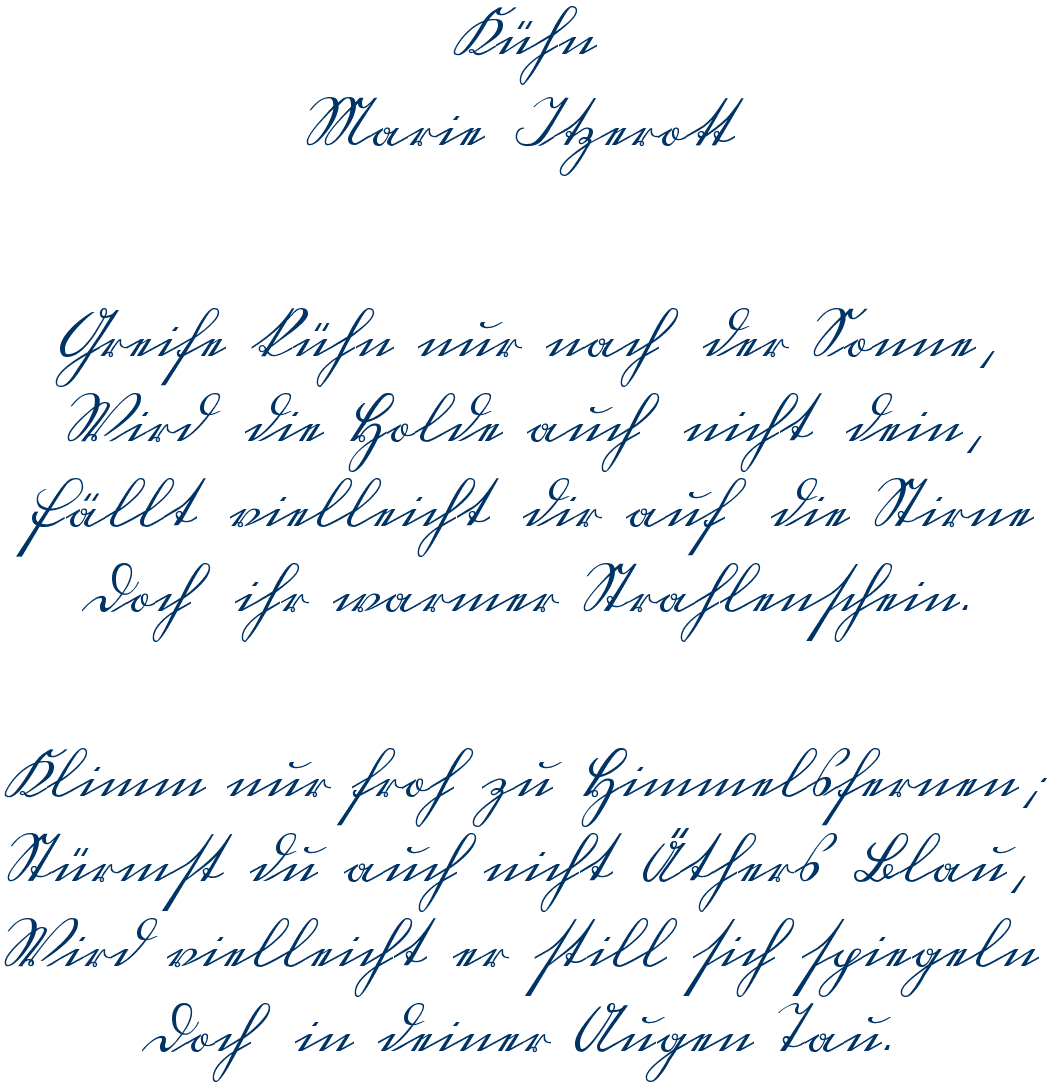 Kühn
Marie Itzerott
Greife kühn nur nach der Sonne,
Wird die Holde auch nicht dein,
Fällt vielleicht dir auf die Stirne
Doch ihr warmer Strahlenschein.
Klimm nur froh zu Himmelsfernen;
Stürmst du auch nicht Äthers Blau,
Wird vielleicht er still sich spiegeln
Doch in deiner Augen Tau.